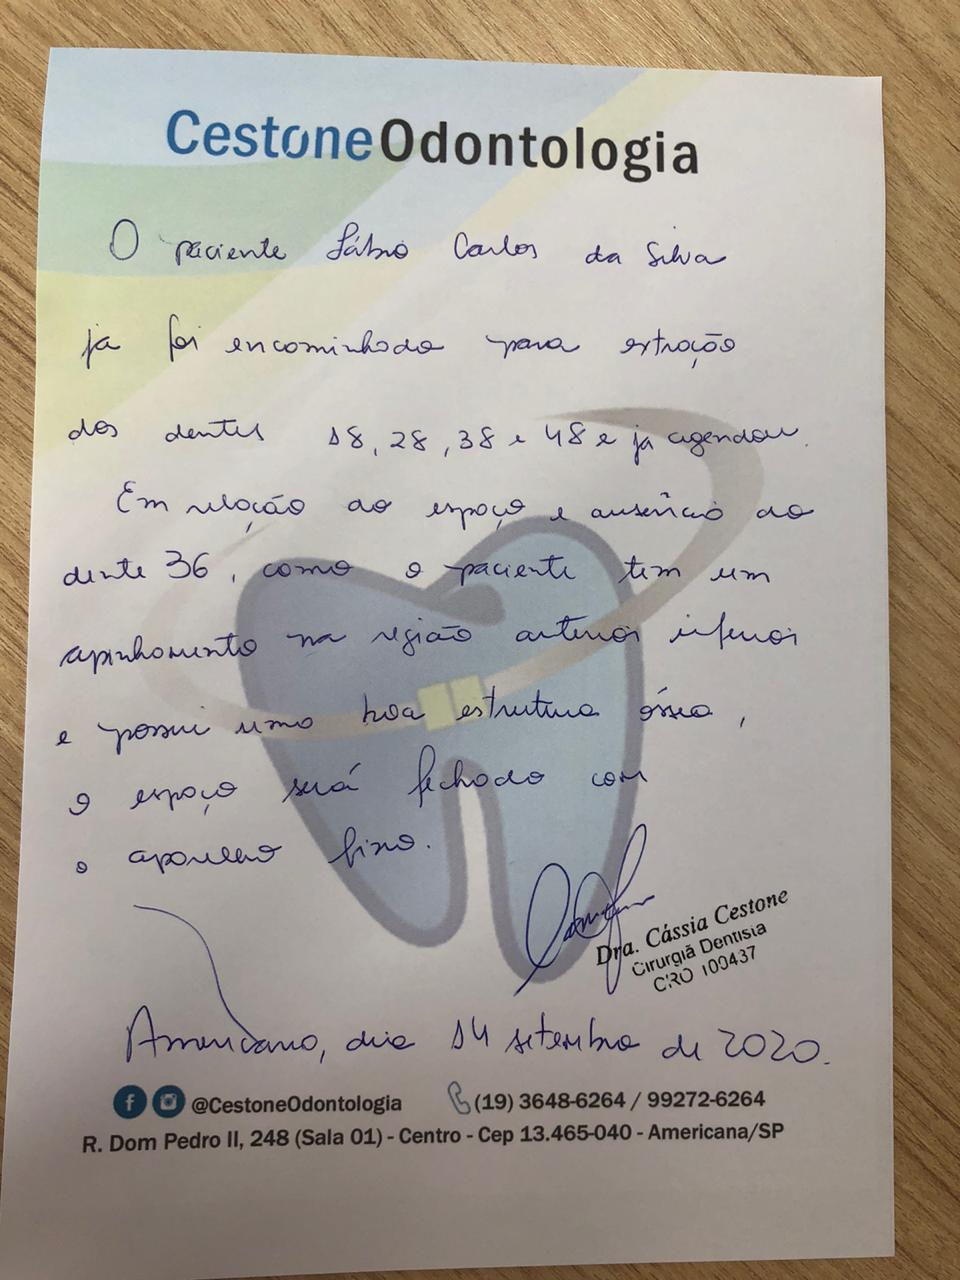 CestoneOdontologia
O paciente Fábio Carlos da Silva
ja foi encaminhado para extração
dos dentes 18, 28, 38 e 48 e ja agendou.
Em relação ao espaço e ausência do
dente 36, como o paciente tem um
apinhamento na região anterior inferior
e possui uma boa estrutura óssea,
o espaço será fechado com
o aparelho fixo.
Dra. Cássia Cestone
Cirurgiã Dentista
CRO 100437
Americana, dia 14 setembro de 2020.
@CestoneOdontologia (19) 3648-6264 / 99272-6264
R. Dom Pedro II, 248 (Sala 01) - Centro - Cep 13.465-040 - Americana/SP